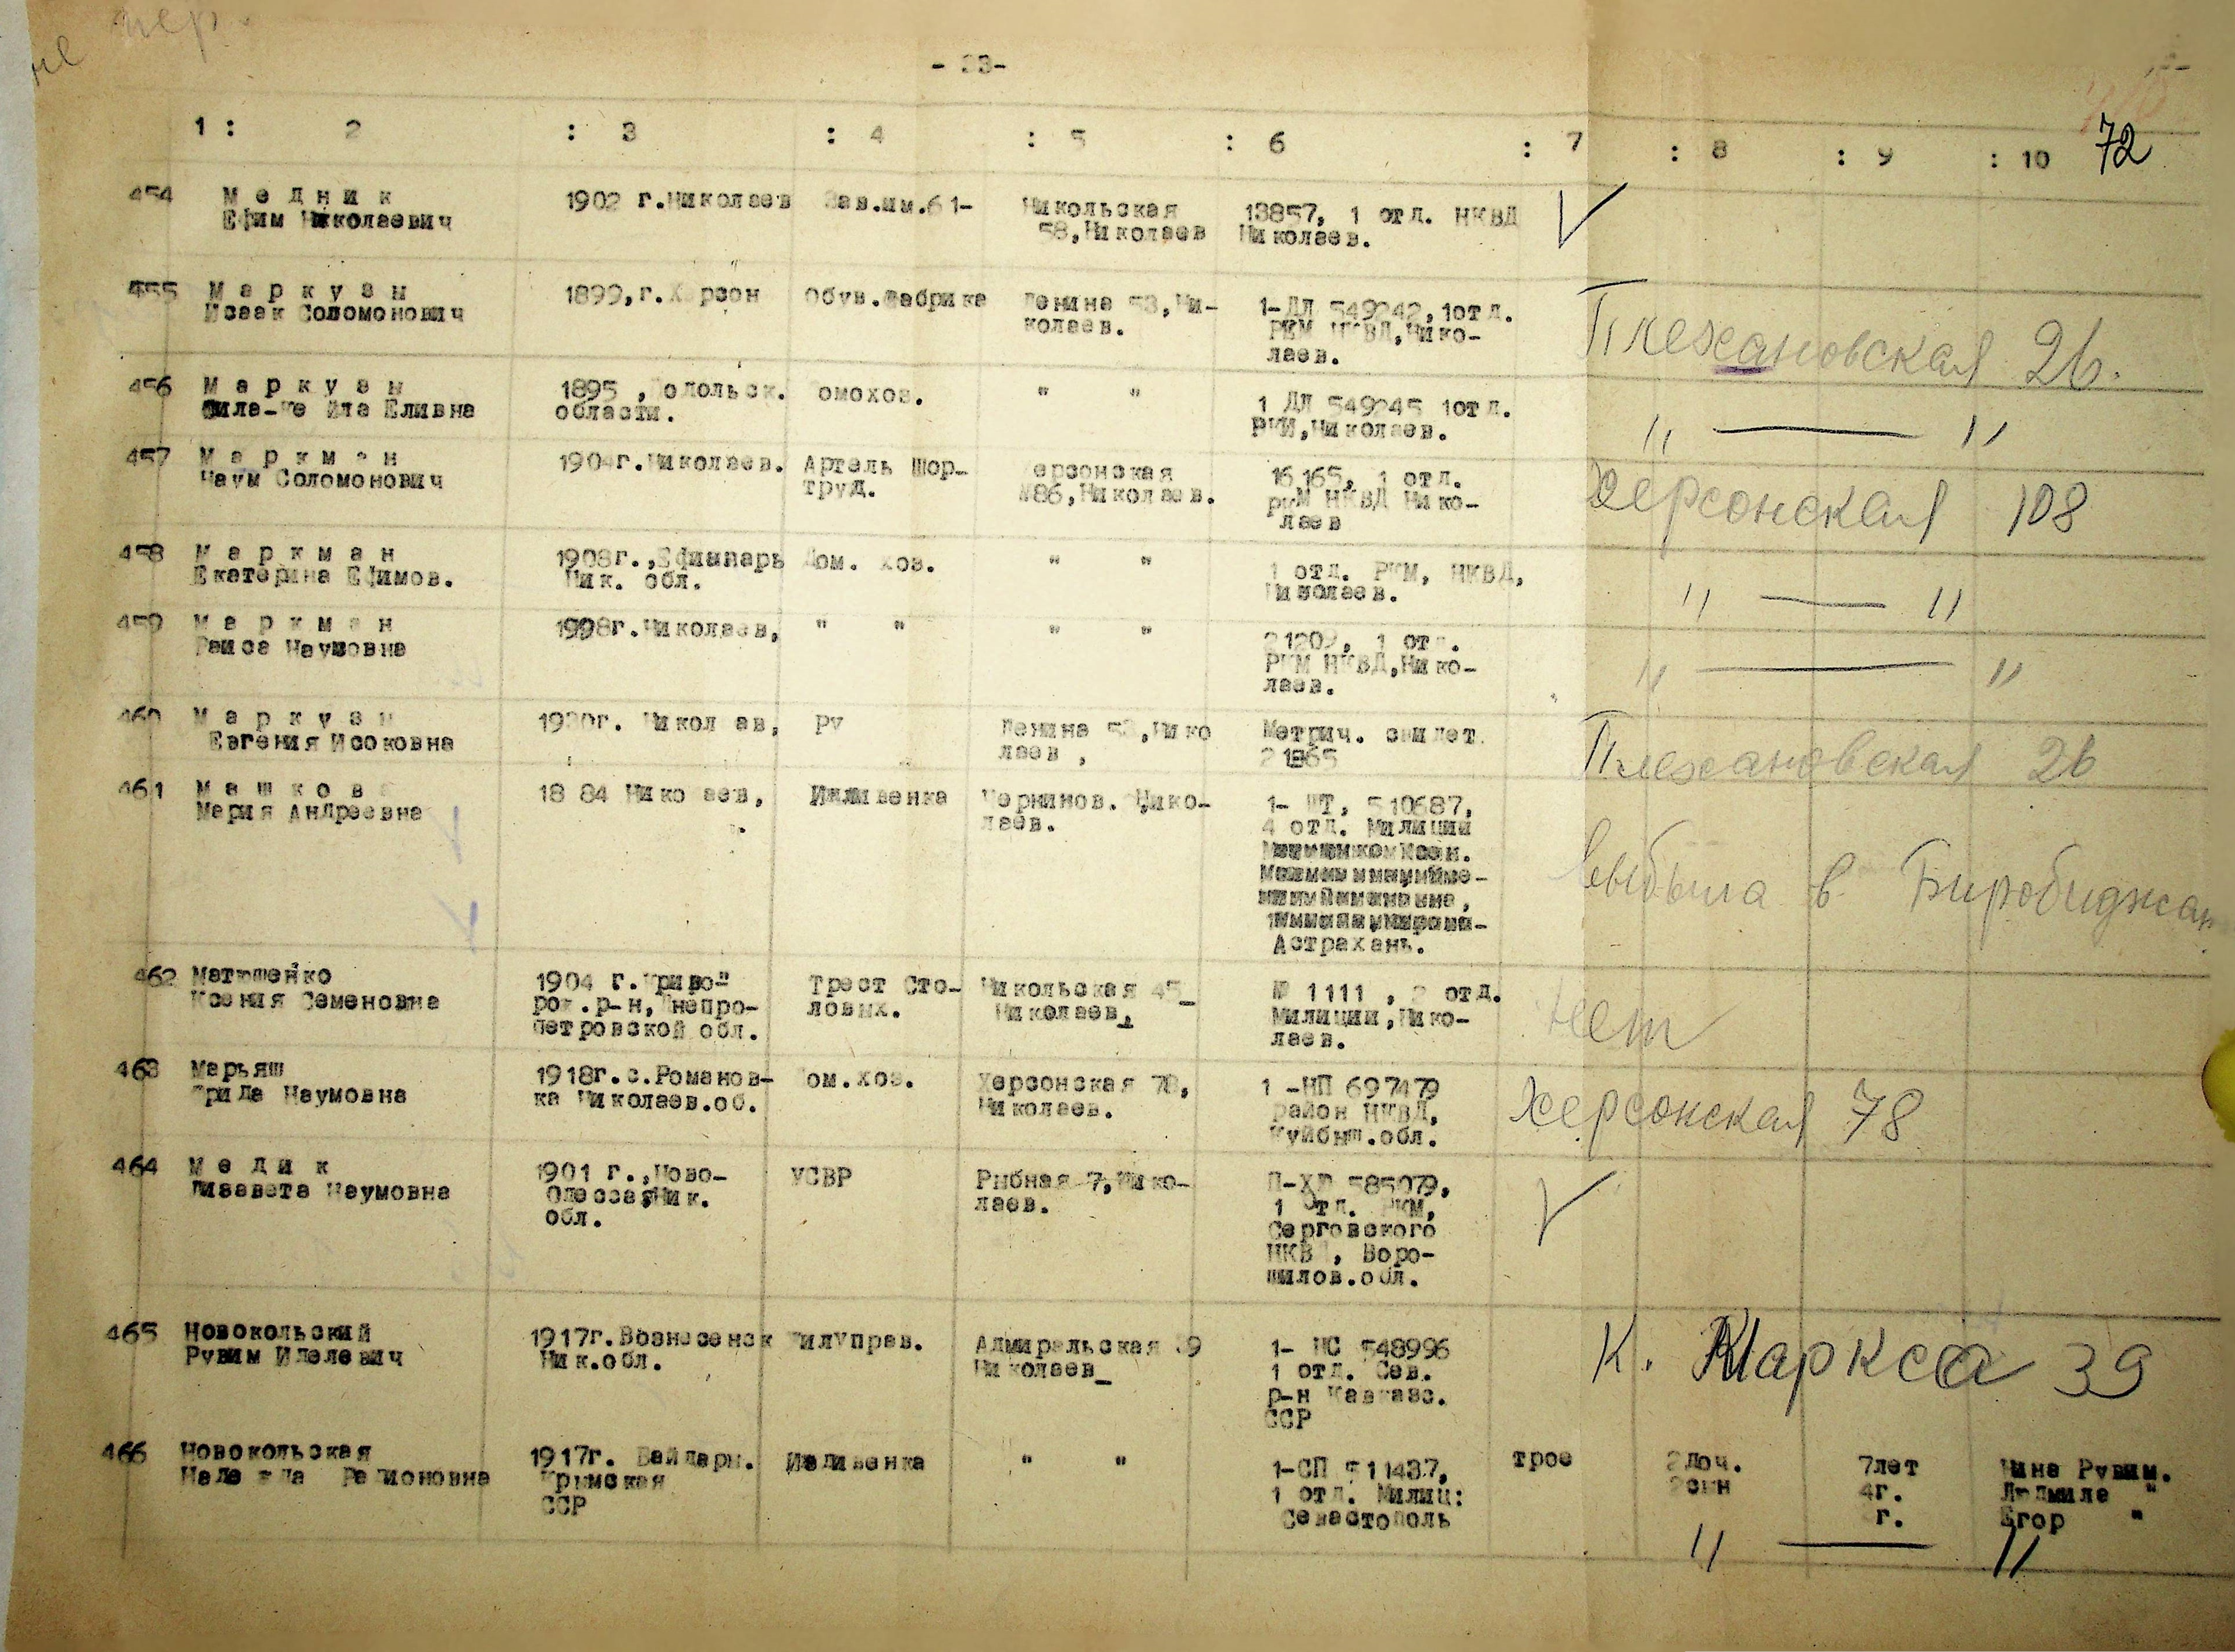 пер.
не
- 33-
1 : 2 : 3 : 4 : 5 : 6 : 7 : 8 : 9 : 10
72
454 М е д н и к 1902 г.Николаев Зав.им.61- Никольская 13857, 1 отд. НКВД
Ефим Николаевич 58,Николаев Николаев.
455 М а р к у з н 1899,г.Херсон Обув.фабрика Ленина 53,Ни- 1-ДЛ 549242,1отд.
Исаак Соломонович колаев. РКМ НКВД,Нико-
лаев.
Плехановская 26.
456 М а р к у з н 1895 , Подольск. Домохоз. " " 1 ДЛ 549245 1отд.
Ита Еливна области. РКМ,Николаев.
" — "
457 М а р к м а н 1904г.Николаев. Артель Шор- Херсонская 16165, 1 отд.
Наум Соломонович труд. №86,Николаев. РКМ НКВД Нико-
лаев
Херсонская 108
458 М а р к м а н 1908г.,Ефимпарь Дом. хоз. " " 1 отд. РКМ, НКВД,
Екатерина Ефимов. Ник. обл. Николаев.
" — "
459 М а р к м а н г.Николаев, " " " " 21209, 1 отд.
Раиса Наумовна РКМ НКВД,Нико-
лаев.
" — "
460 М а р к у з н 1930г. Николаев, РУ Ленина 53,Нико Метрич. свидет.
Евгения Исоковна лаев ,
Плехановская 26
461 М а ш к о в а 1884 Николаев, Иждивенка Чернинов. Нико- 1- ШТ, 510687,
Мария Андреевна лаев. 4 отд. Милиции
Астрахань.
выбыла в Биробиджан
462 Матюшенко 1904 г.Криво- Трест Сто- Никольская 45 № 1111 , 2 отд.
Ксения Семеновна рож.р-н,Днепро- ловых. Николаев. Милиции,Нико-
петровской обл. лаев.
нет
463 Марьяш 1918г.с.Романов- Дом.хоз. Херсонская 78, 1 -НП 697479
Фрида Наумовна ка Николаев.об. Николаев. район НКВД,
Куйбыш.обл.
Херсонская 78
464 М е д и к 1901 г.,Ново- УСВР Рыбная 7,Нико- П-ХШ 585079,
Лизавета Наумовна Одесса,Ник. лаев. 1 отд. РКМ,
обл. Серговского
НКВД, Воро-
шилов.обл.
465 Новокольский 1917г.Вознесенск ЖилУправ. Адмиральская 39 1- НС 548996
Рувим Иделевич Ник.обл. Николаев 1 отд. Сев.
р-н Кавказс.
ССР
К. Маркса 39
466 Новокольская 1917г. Байдарн. Иждивенка " " 1-СП 511437, трое 2доч. 7лет Нина Рувим.
Надежда Родионовна Крымская 1 отд. Милиц: 2сын 4г. Людмила "
ССР Севастополь г. Егор "
" — "